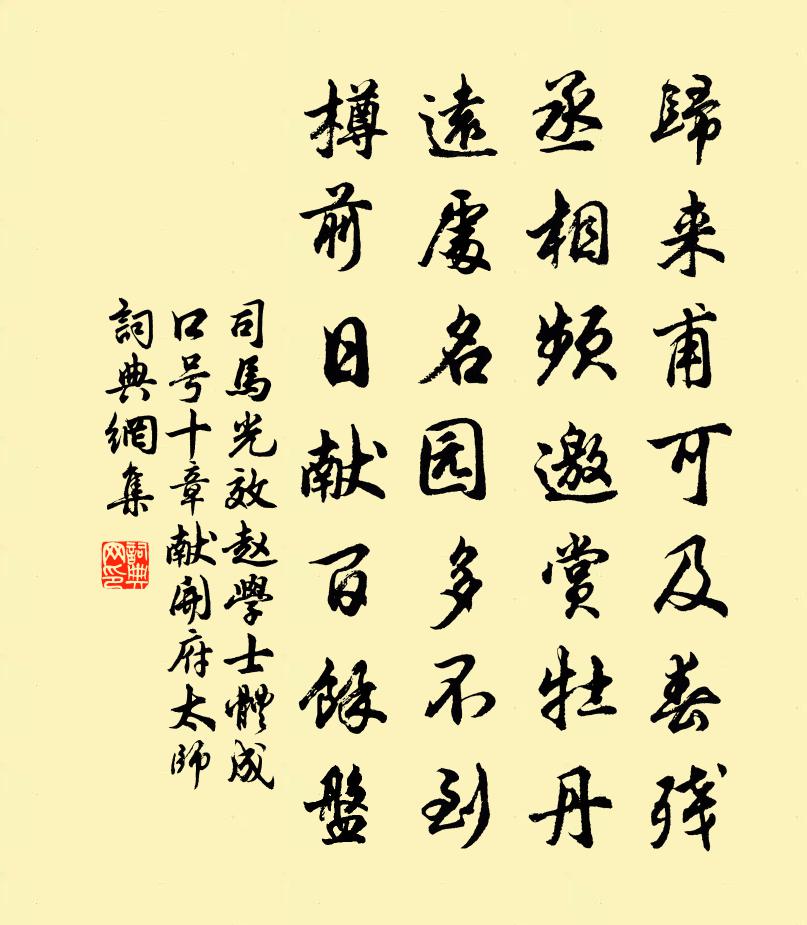 歸来甫可及春残
丞相频邀赏牡丹
遠處名园多不到
樽前日献百餘盤
司馬光效赵學士體成
口号十章献開府太師
詞典網集
詞典网印